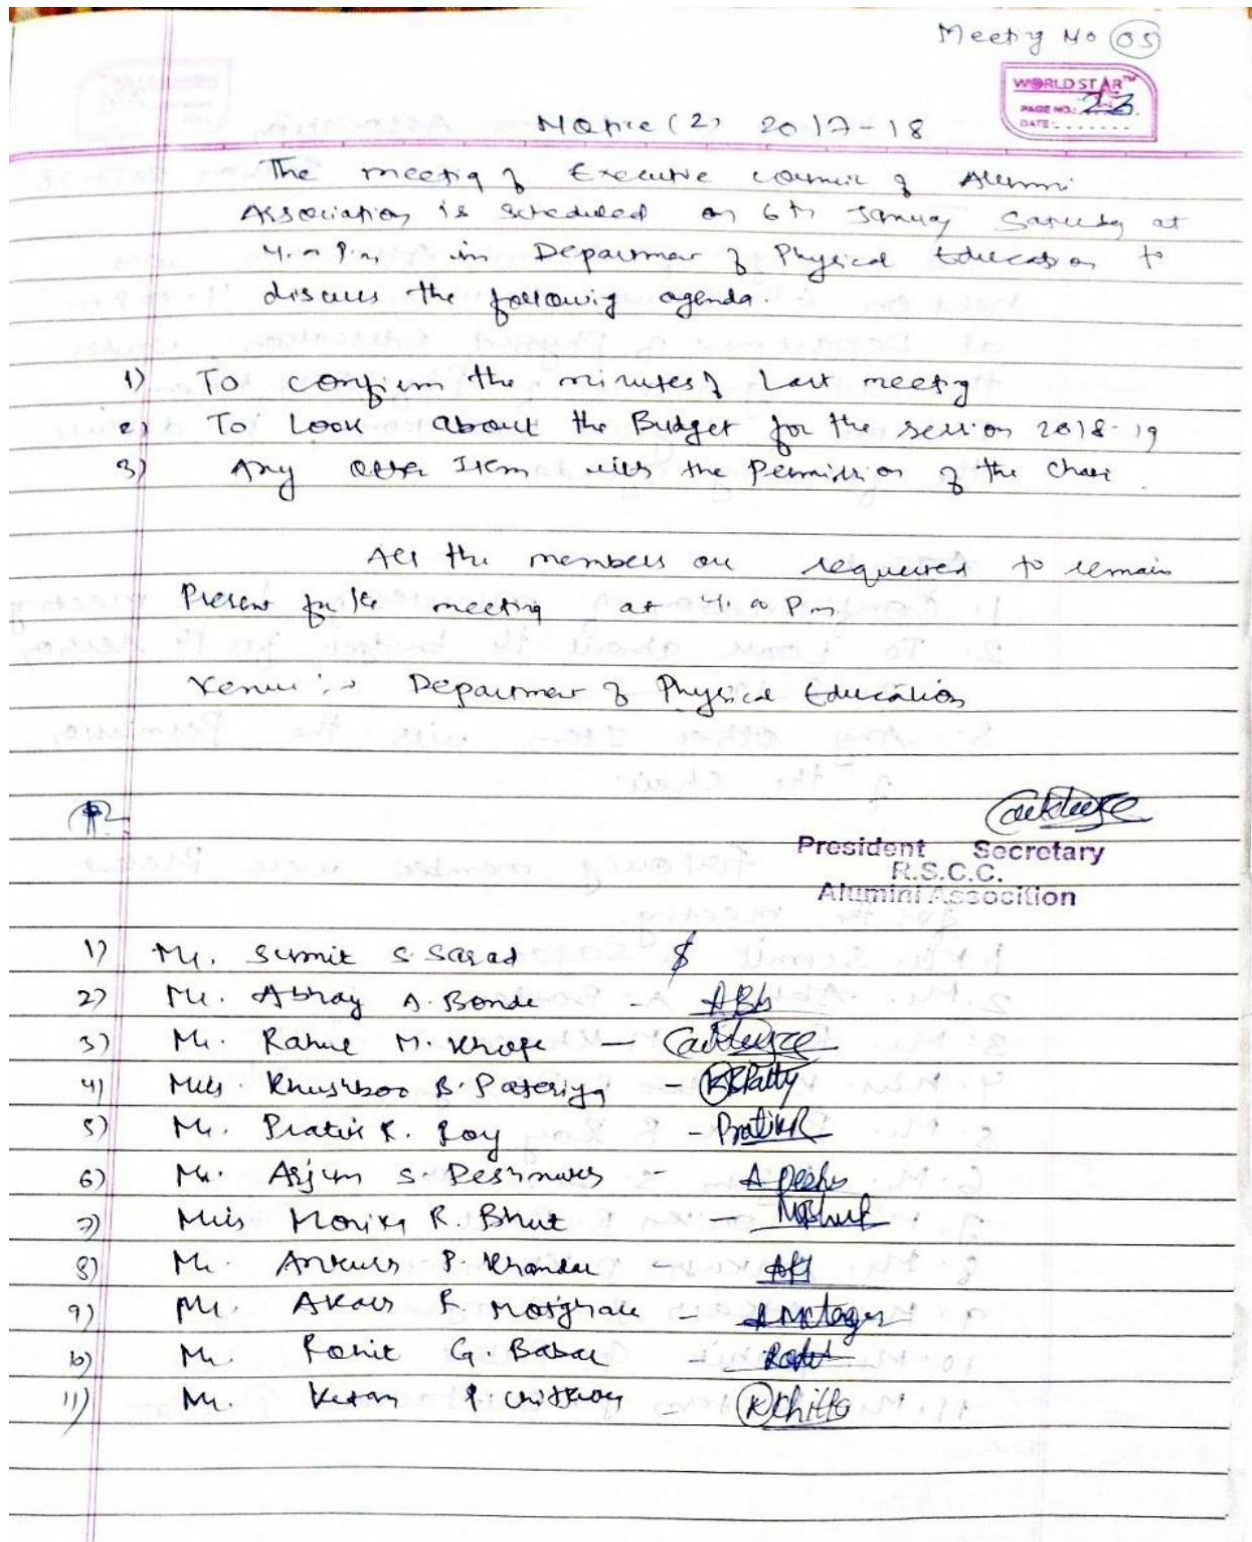 Meeting No 05
WORLD STAR™
PAGE NO.: 23
DATE:
Notice (2) 2017-18
The meeting of Executive council of Alumni
Association is scheduled on 6th January Saturday at
4.00 P.m in Department of Physical Education to
discuss the following agenda.
1) To confirm the minutes of Last meeting
2) To Look about the Budget for the session 2018-19
3) Any other Item with the Permission of the Chair.
All the members are required to remain
Present for the meeting at 4.00 Pm
Venue :- Department of Physical Education
President Secretary
R.S.C.C.
Alumini Assocition
1) Mr. Sumit S. Sarad
2) Mr. Abhay A. Bonde - ABh
3) Mr. Rahul M. -
4) Miss. Khushboo B. Pateriya -
5) Mr. Pratik R. Roy - PratikR
6) Mr. Arjun S. Deshmukh -
7) Miss Monika R. Bhut -
8) Mr. Ankush P. -
9) Mr. Akash R. -
10) Mr. Rohit G. Babar -
11) Mr. Ketan P. -